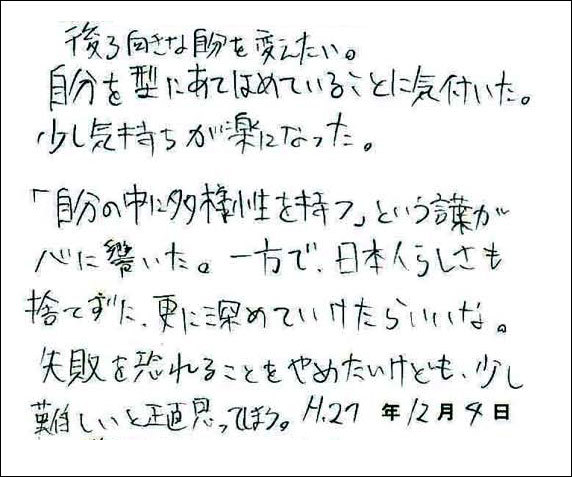 後ろ向きな自分を変えたい。
自分を型にあてはめていることに気付いた。
少し気持ちが楽になった。
「自分の中に多様性を持つ」という言葉が
心に響いた。一方で、日本人らしさも
捨てずに、更に深めていけたらいいな。
失敗を恐れることをやめたいけども、少し
難しいと正直思ってしまう。H.27 年12月4日